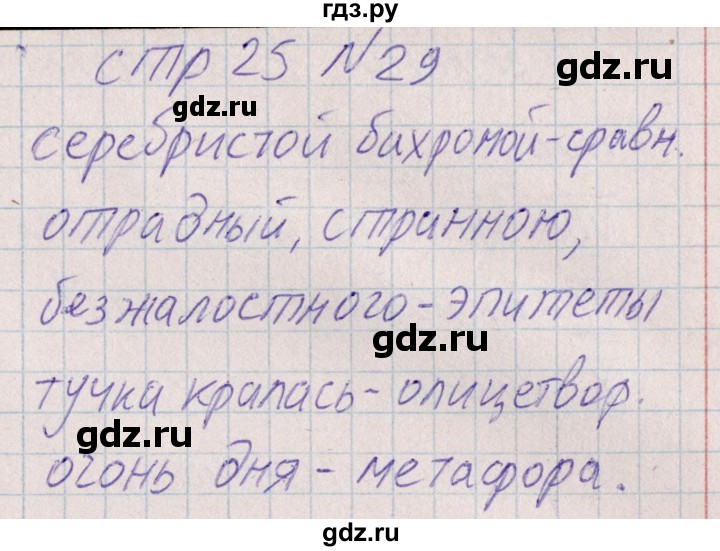 гдз.ру
стр 25 №29
gdz.ru
gdz.ru
серебристой бахромой-сравн.
отрадный, странною,
безжалостного-эпитеты
gdz.ru
тучка кралась-олицетвор.
gdz.ru
огонь дня - метафора.
gdz.ru